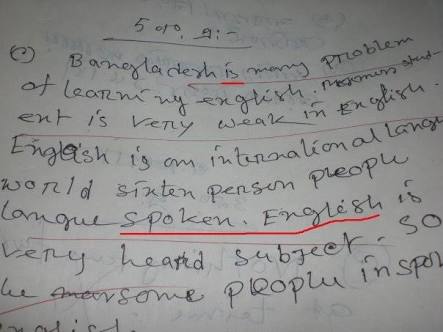 5 নং প্রঃ-
(c) Bangladesh is many problem
of learning english. student
ent is very weak in English.
English is an international langu
world sixten person people
langue spoken. English is
very heard subject. so
some people in spok